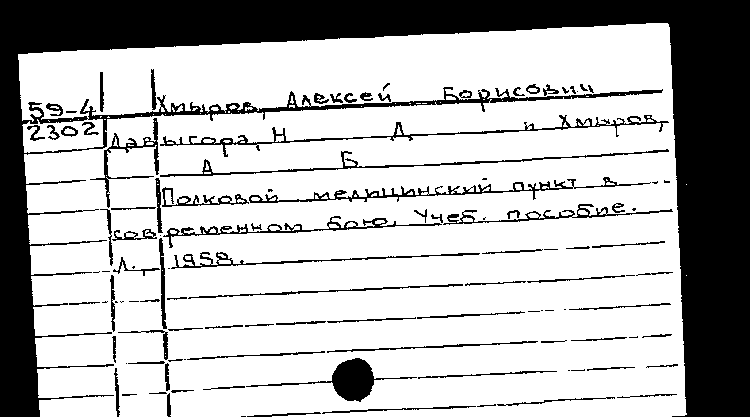 59-4 Хмыров, Алексей Борисович
2302 Давыгора, Н Д и Хмыров,
А Б
Полковой медицинский пункт в
современном бою. Учеб. пособие.
Л., 1958.